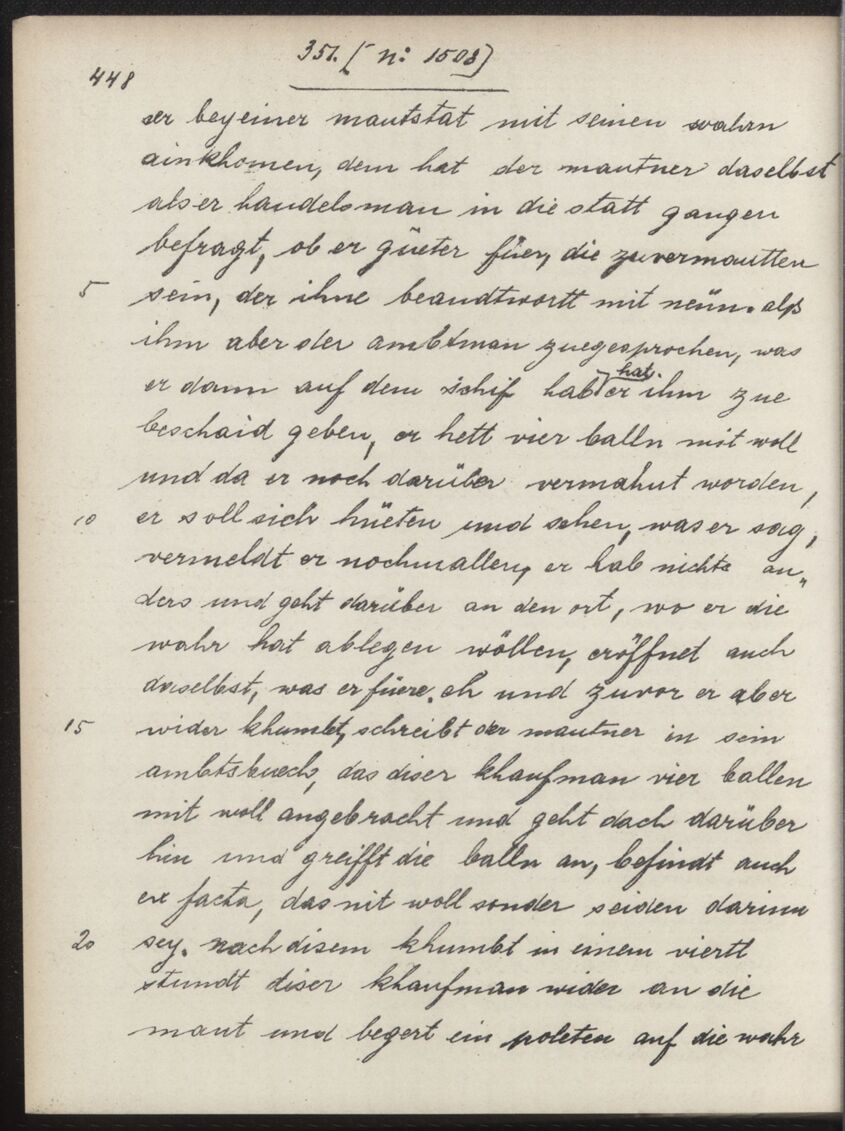 351. [n: 1508]
448
er bey einer mautstat mit seinen wahrn
ainkhomen, dem hat der mautner daselbst
als er handelsman in die statt gangen
befragt, ob er güeter füer, die zuvermautten
5 sein, der ihne beandtwortt mit neün. alß
ihm aber der ambtman zuegesprochen, was
er dann auf dem schif hab er ihm zue
hat
beschaid geben, er hett vier balln mit woll
und da er noch darüber vermahnt worden,
10 er soll sich hüeten und sehen, was er sag,
vermeldt er nochmallen, er hab nichts an„
ders und geht darüber an den ort, wo er die
wahr hat ablegen wöllen, eröffnet auch
daselbst, was er füere. eh und zuvor er aber
15 wider khumbt, schreibt der mautner in sein
ambtsbuech, das diser khaufman vier ballen
mit woll angebracht und geht dach darüber
hin und greifft die balln an, befindt auch
ex facta, das nit woll sonder seiden darinn
20 sey. nach disem khumbt in einem viertt
stundt diser khaufman wider an die
maut und begert ein poleten auf die wahr